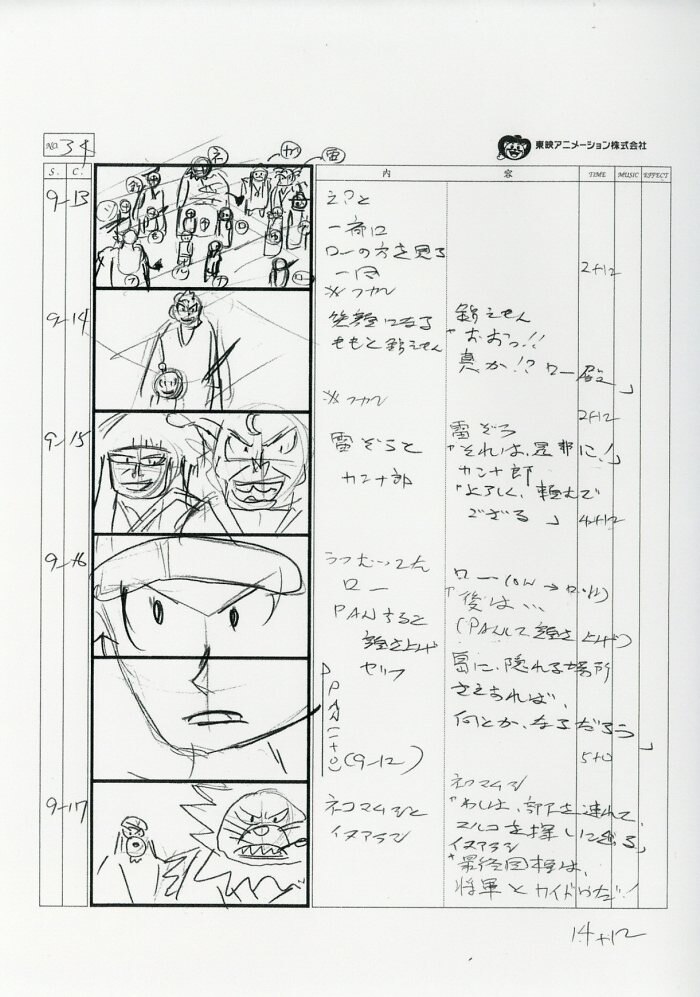 NO. 34
東映アニメーション株式会社
S. C. 内 容 TIME MUSIC EFFECT
9-13
え?と
一斉に
ローの方を見る
一同
2+12
9-14
※フカン
笑顔になる
ももと錦えもん
錦えもん
「おおっ!!
真か!? ロー殿」
2+12
9-15
※フカン
雷ぞうと
カン十郎
雷ぞう
「それは、是非に!」
カン十郎
ござる」
4+12
9-16
うつむってた
ロー
PANすると
顔を上げ
セリフ
PAN(1+0)
(9-12)
ロー
「後は…
(PANして顔を上げ)
島に、隠れる場所
さえあれば、
何とか、なるだろう」
5+0
9-17
ネコマムシと
イヌアラシ
ネコマムシ
「わしは、部下を連れて、
マルコを探しに出る」
イヌアラシ
「最終目標は、
将軍とカイドウだ!
14+12